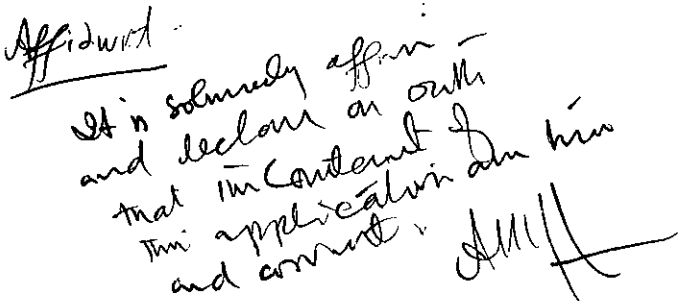 Affidavit.
It is solemnly affirm -
and declare on outh
that the Contents of
this application are true
and correct.